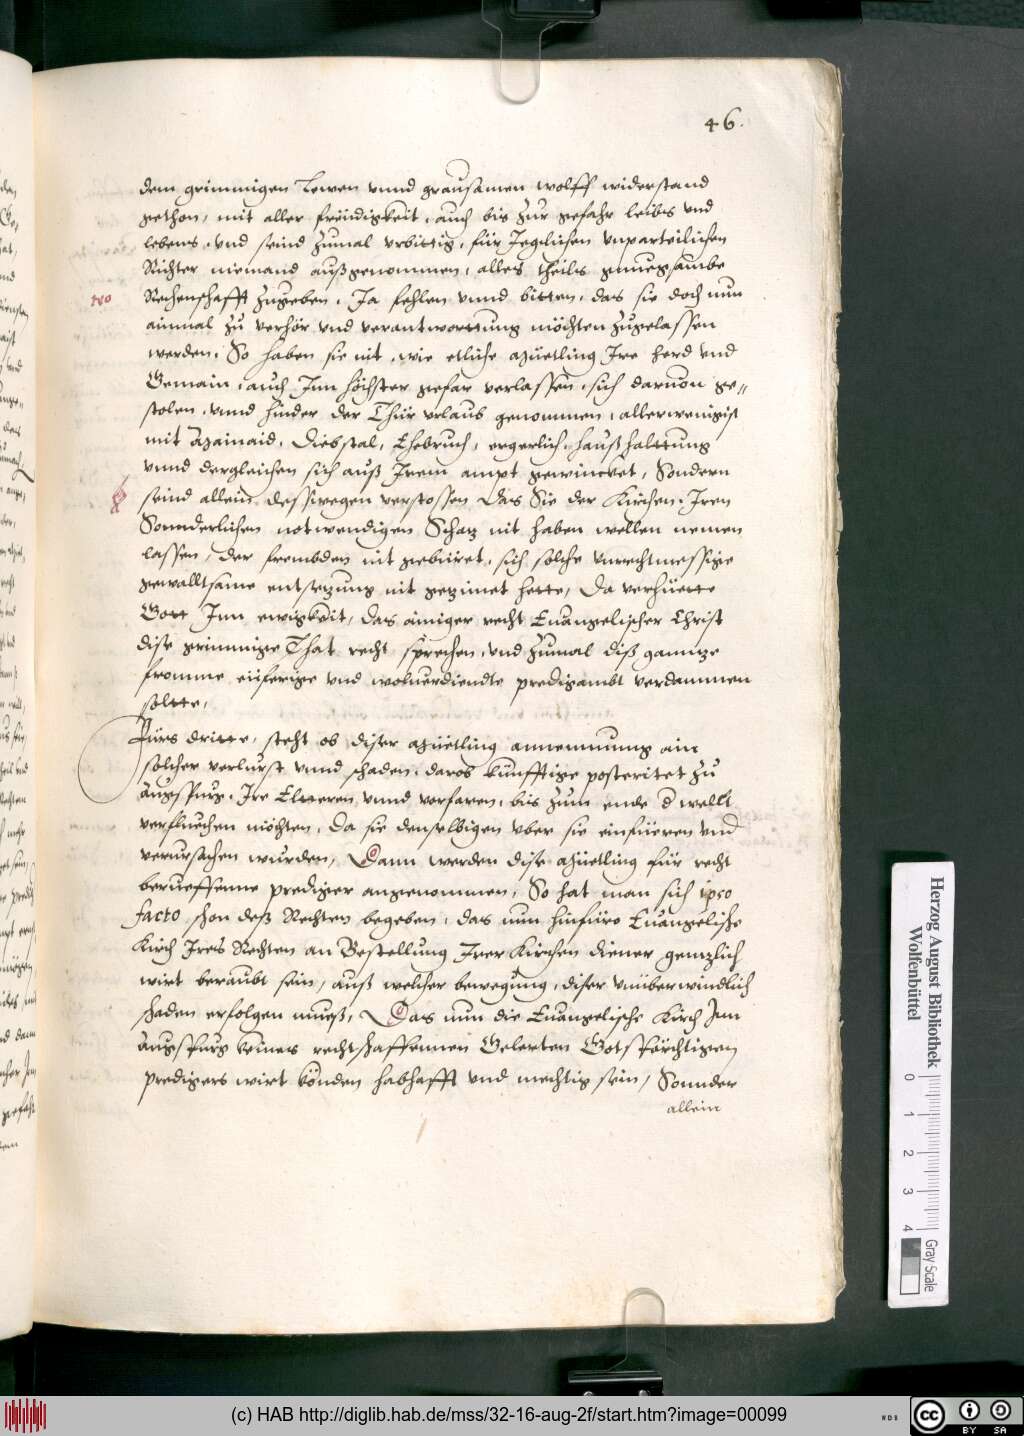 46.
dem grimmigen Lewen vnnd grausamen wolff widerstand
gethon, mit aller freüdigkeit, auch bis zur gefahr leibs vnd
lebens, vnd seind zumal vrbittig, für Jeglichen vnparteilichen
Richter niemand außgenommen, alles theils gnuegsambe
Rechenschafft zugeben, Ja fehlen vnnd bitten, das sie doch nun
ainmal zu verhör vnd verantworttung möchten zugelassen
werden. So haben sie nit, wie etliche Müetling Ire herd vnd
Gemain, auch Inn höchster gefar verlassen, sich daruon ge-
stolen, vnnd hinder der Thür vrlaub genommen, allerwenigist
mit Mainaid, Diebstal, Ehebruch, ergerlich haußhalttung
vnnd dergleichen sich auß Irem ampt gewircket, Sondern
seind allein desswegen verstossen Das Sie der Kirchen Iren
Sonnderlichen notwendigen Schatz nit haben wellen nemen
lassen, der frembden nit gebüret, sich solche vnrechtmessige
gewalltsame entsetzung nit gezimet hette, Da verhüette
Gott Inn ewigkeit, das ainiger recht Euangelischer Christ
dise grimmige That recht sprechen, vnd zumal diß ganntze
fromme eüferige vnd woluerdiendte predigambt verdammen
soltte,
Fürs dritte, steht ob diser Müetling annemmung ain
solcher verlurst vnnd schaden, darob künfftige posteritet zu
Augspurg, Ire Eltteren vnnd vorfaren, bis zum ende d wellt
verfluechen möchten, Da sie denselbigen vber sie einfüeren vnd
verursachen wurden, Dann werden dise Müetling für recht
berueffenne prediger angenommen, So hat man sich ipso
facto schon deß Rechten begeben, das nun hinfüro Euangelische
Kirch Ires Rechten an Bestellung Irer Kirchen diener gentzlich
wirt beraubt sein, auß welcher bewegung, diser vnüberwindlich
schaden erfolgen mueß, Das nun die Euangelische Kirch Inn
Augspurg keines rechtschaffennen Gelerten Gotsförchtigen
predigers wirt könden habhafft vnd mechtig sein, Sonnder
allein
Herzog August Bibliothek
Wolfenbüttel
0 1 2 3 4
Gray Scale
(c) HAB http://diglib.hab.de/mss/32-16-aug-2f/start.htm?image=00099
WDB
cc BY SA